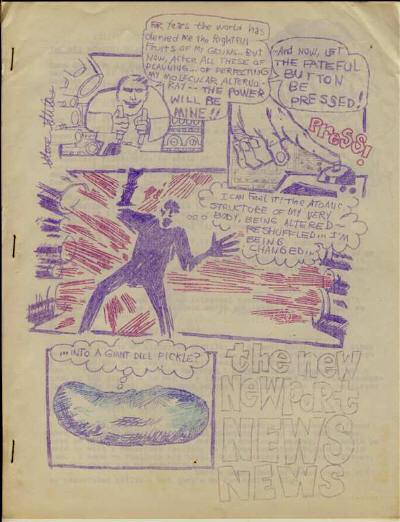 FOR YEARS THE WORLD HAS
DENIED ME THE RIGHTFUL
FRUITS OF MY GENIUS.. BUT
NOW, AFTER ALL THESE OF
PLANNING... OF PERFECTING
MY MOLECULAR ALTERUO-
RAY -- THE POWER
WILL BE
MINE!!
..AND NOW, LET
THE FATEFUL
BUTTON
BE
PRESSED!
PRESS!
I CAN FEEL IT! THE ATOMIC
STRUCTURE OF MY VERY
BODY, BEING ALTERED--
RESHUFFLED... I'M
BEING
CHANGED...
...INTO A GIANT DILL PICKLE?
the new
NEWPORT
NEWS
NEWS